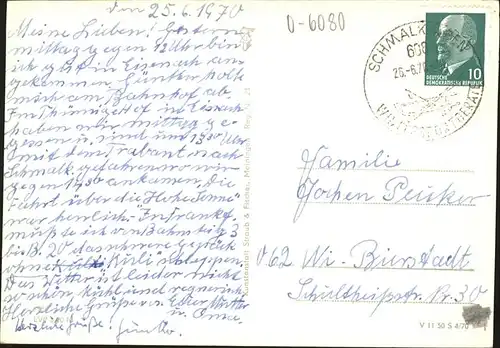 den 25.6.1970
0-6080
Meine Lieben! Gestern
mittag gegen 12 Uhr bin
ich gut in Eisenach an
gekommen. Günter holte
mich am Bahnhof ab.
Im Thüringer Hof in Eisenach
haben wir mittag ge
gessen u. sind und 13 30 Uhr
mit dem Trabant nach
Schmalk. gefahren wo wir
gegen 14 30 ankamen. Die
Fahrt über die Hohe Sonne
war herrlich. In Frankf.
mußte ich von Bahnsteig 3
bis B. 20 das schwere Gepäck
ohne Kuli schleppen
Das Wetter ist leider nicht
so schön, kühl und regnerisch
Herzliche Grüße von Euer Mutter
u. Oma.
Herzliche Grüße! Günther.
SCHMALKALDEN
608
26.-6.70
DEUTSCHE
DEMOKRATISCHE REPUBLIK
10
Familie
Jochen Peuker
062 Wi-Bierstadt
Schultheißstr. Nr. 30
Kunstanstalt Straub & Fischer, Meiningen
V 11 50 S 4/70